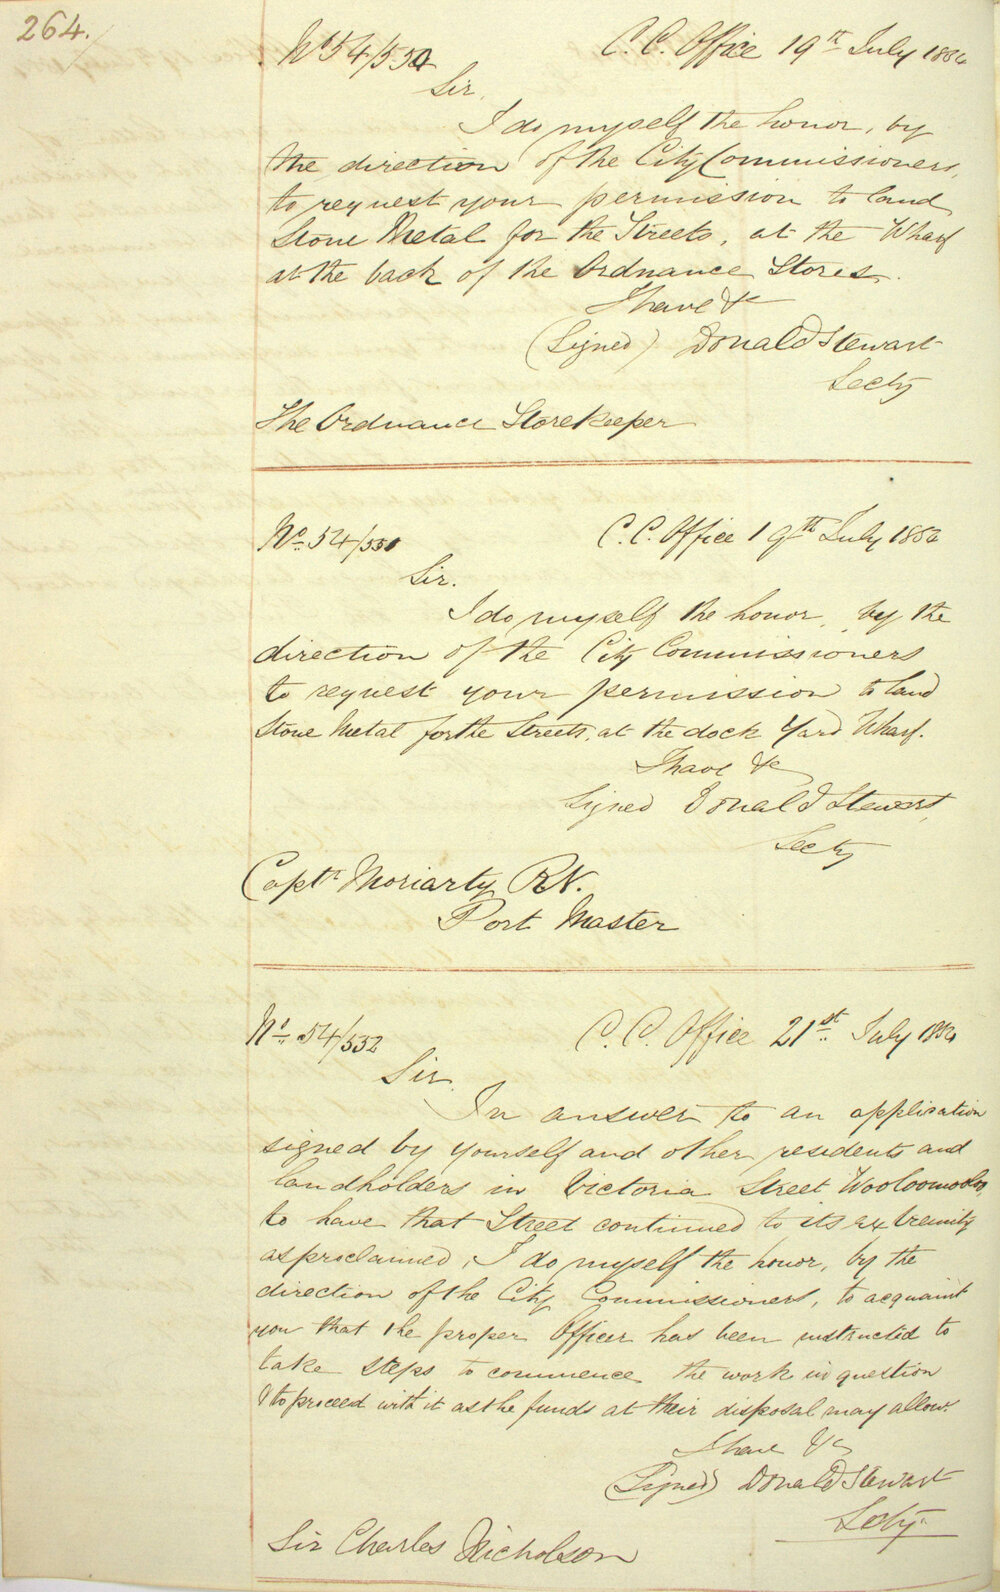 264.
No 54/530 C. C. Office 19th July 1854
Sir,
I do myself the honor, by
the direction of the City Commissioners,
to request your permission to land
Stone Metal for the Streets, at the Wharf
at the back of the Ordnance Stores.
I have &c
(Signed) Donald Stewart
Secty
The Ordnance Storekeeper
No. 54/531 C. C. Office 19th July 1854
Sir.
I do myself the honor, by the
direction of the City Commissioners
to request your permission to land
Stone Metal for the Streets, at the dock Yard Wharf.
I have &c
Signed Donald Stewart,
Secty
Captn Moriarty RN.
Port Master
No. 54/532 C. C. Office 21st July 1854
Sir,
In answer to an application
signed by yourself and other residents and
landholders in Victoria Street Wooloomooloo
to have that Street continued to its extremity
as proclaimed, I do myself the honor, by the
direction of the City Commissioners, to acquaint
you that the proper Officer has been instructed to
take steps to commence the work in question
& to proceed with it as the funds at their disposal may allow.
I have &c
(Signed) Donald Stewart
Secty
Sir Charles Nicholson